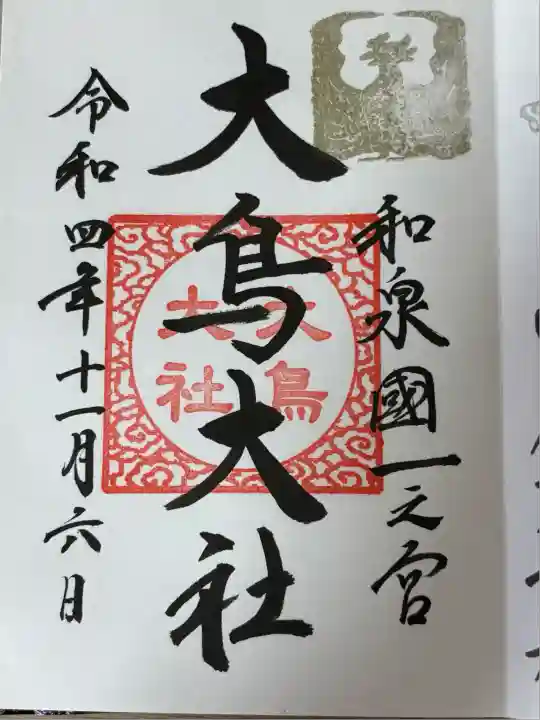 和泉國一之宮
大鳥大社
大鳥
大社
令和四年十一月六日